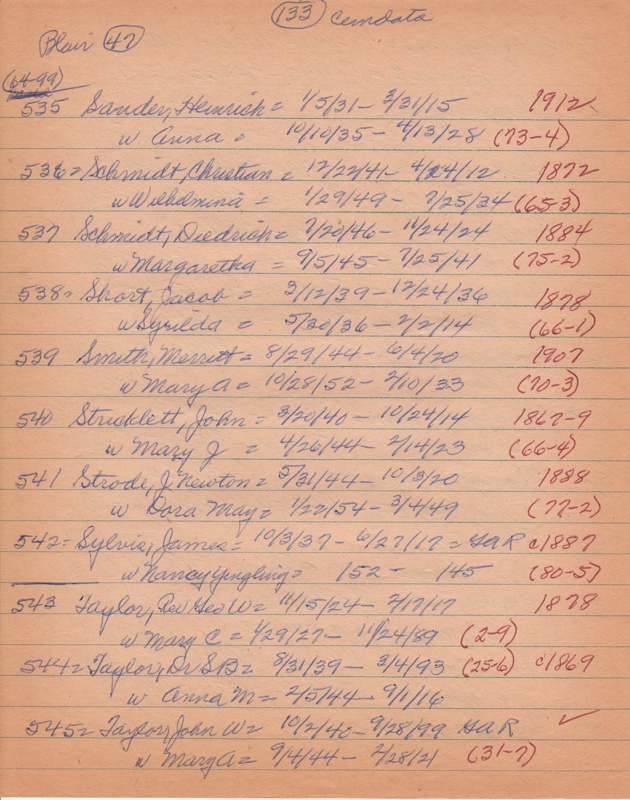 133 Cemdata
Blair 47
(64-99)
535 Sander, Heinrich = 1/5/31 - 3/31/15 1912
w Anna = 10/10/35 - 4/13/28 (73-4)
536 = Schmidt, Christian = 12/22/41 - 4/24/12 1872
w Wilhelmina = 1/29/49 - 7/25/34 (65-3)
537 Schmidt, Diedrich = 7/20/46 - 11/24/24 1884
w Margaretha = 9/5/45 - 7/25/41 (75-2)
538 = Short, Jacob = 3/12/39 - 12/24/36 1878
w Syrilda = 5/30/36 - 2/2/14 (66-1)
539 Smith, Merritt = 8/29/44 - 6/4/20 1907
w Mary A = 10/28/52 - 2/10/33 (70-3)
540 Stricklett, John = 3/20/40 - 10/24/14 1867-9
w Mary J = 4/26/44 - 2/14/23 (66-4)
541 Strode, J Newton = 5/31/44 - 10/3/20 1888
w Dora May = 1/22/54 - 3/4/49 (77-2)
542 = Sylvis, James = 10/3/37 - 6/27/17 = GAR c1887
w Nancy Yingling = 152 - 145 (80-5)
543 Taylor, Rev Geo W = 11/15/24 - 2/17/17 1878
w Mary C = 1/29/27 - 11/24/89 (2-9)
544 = Taylor, Dr S B = 8/31/39 - 3/4/93 (25-6) c1869
w Anna M = 2/5/44 - 9/1/16
545 = Taylor, John W = 10/2/40 - 9/28/99 GAR ✓
w Mary A = 9/4/44 - 2/28/21 (31-7)